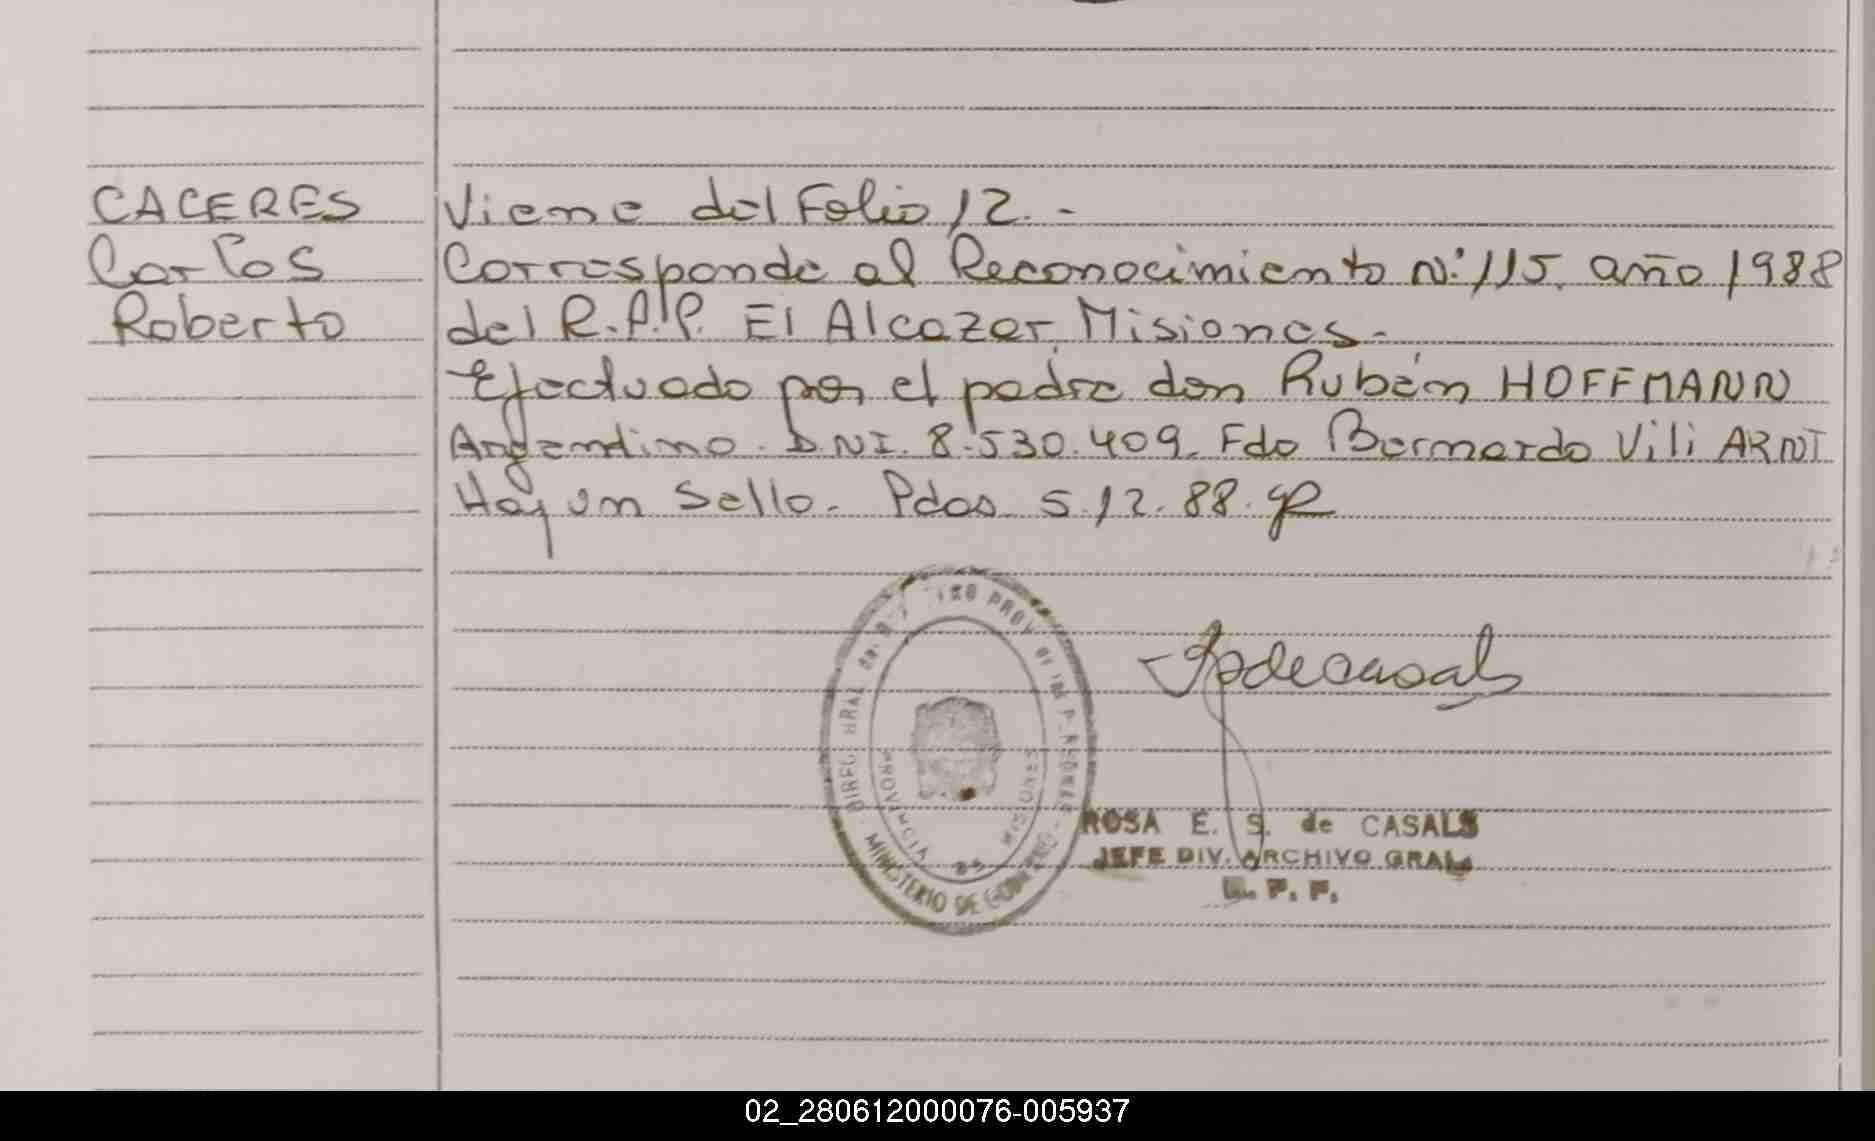 CACERES
Carlos
Roberto
Viene del Folio 12.-
Corresponde al Reconocimiento N° 115. año 1988
del R.P.P. El Alcazar, Misiones.-
Efectuado por el padre don Rubén HOFFMANN
Argentino. DNI. 8.530.409. Fdo Bernardo Vili ARNT
Hay un Sello. Pdas 5.12.88.
DIREC. GRAL
PROV.
MINISTERIO DE GOBIERNO
PROVINCIA DE MISIONES
ROSA E. S. de CASALS
JEFE DIV. ARCHIVO GRAL.
02_280612000076-005937